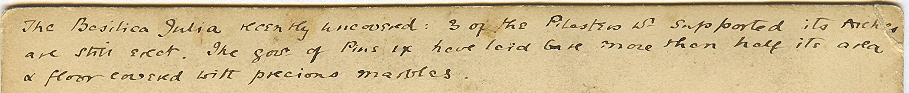 The Basilica Julia recently uncovered: 3 of the Pilasters wh supported its Arches
are still erect. The govt of Pius IX have laid bare more than half its area
& floor covered with precious marbles.